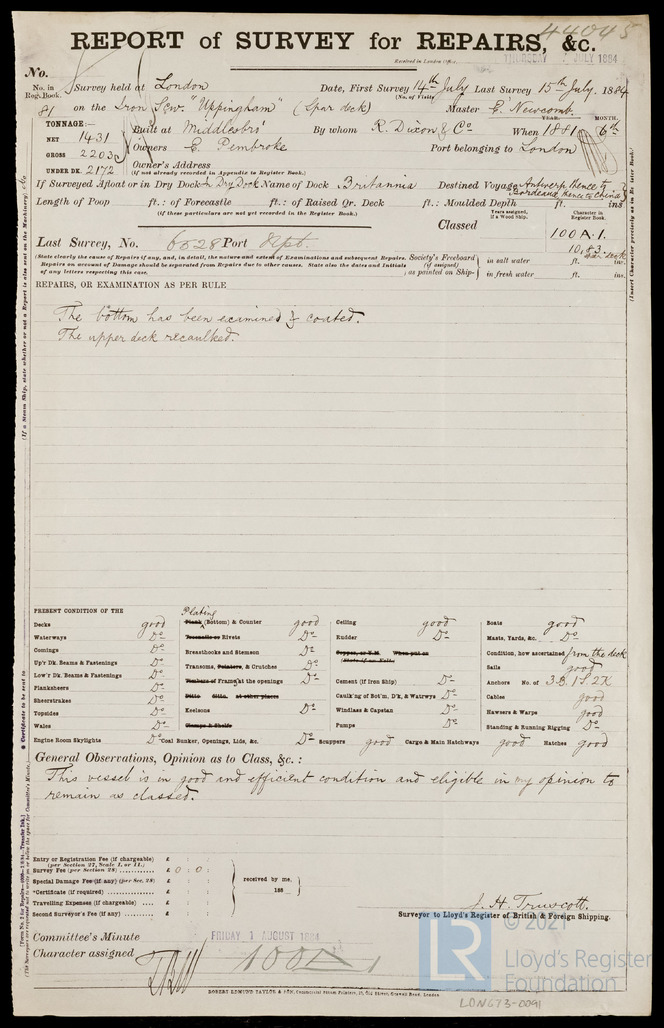 44045
REPORT of SURVEY for REPAIRS, &c.
Received in London Office,
THURSDAY 17 JULY 1884
No.
No. in Reg. Book. Survey held at London Date, First Survey 14th July Last Survey 15th July. 1884
(No. of Visits)
81 on the Iron Scw "Uppingham" (Spar deck) Master E. Newcomb.
TONNAGE:— YEAR. MONTH.
NET 1431 Built at Middlesbro' By whom R. Dixon & Co When 1881 6th
GROSS 2203 Owners E. Pembroke Port belonging to London
UNDER DK. 2172 Owner's Address
(If not already recorded in Appendix to Register Book.)
If Surveyed Afloat or in Dry Dock In Dry Dock Name of Dock Britannia Destined Voyage Antwerp thence to Bordeaux thence to China
Length of Poop ft.: of Forecastle ft.: of Raised Qr. Deck ft.: Moulded Depth ft. ins
(If these particulars are not yet recorded in the Register Book.)
Years assigned, if a Wood Ship. Character in Register Book.
Classed 100 A.1.
10,83.
Last Survey, No. 6528 Port Sept.
(State clearly the cause of Repairs, if any, and, in detail, the nature and extent of Examinations and subsequent Repairs.
Repairs on account of Damage should be separated from Repairs due to other causes. State also the dates and Initials
of any letters respecting this case.
Society's Freeboard (if assigned) as painted on Ship- in salt water ft. ins.
in fresh water ft. ins.
REPAIRS, OR EXAMINATION AS PER RULE
The bottom has been examined & coated.
The upper deck recaulked.
PRESENT CONDITION OF THE
Decks good
Waterways Do
Comings Do
Up'r Dk. Beams & Fastenings Do
Low'r Dk. Beams & Fastenings Do
Planksheers Do
Sheerstrakes Do
Topsides Do
Wales Do
Engine Room Skylights Do
Plating
Plank (Bottom) & Counter good
Treenails or Rivets Do
Breasthooks and Stemson Do
Transoms, Pointers, & Crutches Do
Timbers or Frames at the openings Do
Ditto Ditto, at other places
Keelsons Do
Clamps & Shelfs
Coal Bunker, Openings, Lids, &c. Do
Ceiling good
Rudder Do
Copper, or Y.M. When put on
(State if on Felt.)
Cement (if Iron Ship) Do
Caulk'ng of Bot'm, D'k, & Watrwys Do
Windlass & Capstan Do
Pumps Do
Scuppers good Cargo & Main Hatchways good Hatches good
Boats good
Masts, Yards, &c. Do
Condition, how ascertained from the deck
Sails good
Anchors No. of 3B. 1S 2K
Cables good
Hawsers & Warps good
Standing & Running Rigging Do
General Observations, Opinion as to Class, &c. :
This vessel is in good and efficient condition and eligible in my opinion to
remain as classed.
Entry or Registration Fee (if chargeable) £
(per Section 27, Scale I. or II.)
Survey Fee (per Section 28) £ 0 : 0 :
Special Damage Fee (if any) (per Sec. 28) £
*Certificate (if required) £
Travelling Expenses (if chargeable) £
Second Surveyor's Fee (if any) £
received by me,
188
J. H. Truscott.
Surveyor to Lloyd's Register of British & Foreign Shipping.
Committee's Minute FRIDAY 1 AUGUST 1884
Character assigned 100A1
ROBERT EDMUND TAYLOR & SON,
LR
© 2021
Lloyd's Register
Foundation
LON673-0091
(If a Steam Ship, state whether or not a Report is also sent on the Machinery) &c.
(Insert Character precisely as in Register Book.)
* Certificate to be sent to